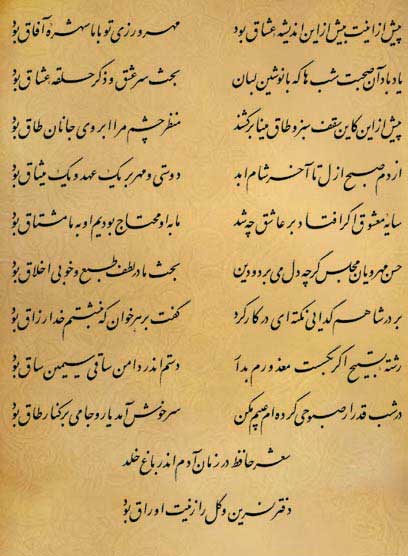 پیش ازاینت بیش از این اندیشهٔ عشاق بود مهرورزی تو با ما شهرهٔ آفاق بود
یاد باد آن صحبت شب ها که با نوشین لبان بحث سر عشق و ذکر حلقه عشاق بود
پیش از این کاین سقف سبز و طاق مینا برکشند منظر چشم مرا ابروی جانان طاق بود
از دم صبح ازل تا آخر شام ابد دوستی و مهر بر یک عهد و یک میثاق بود
سایه معشوق اگر افتاد بر عاشق چه شد ما به او محتاج بودیم او به ما مشتاق بود
حسن مهرویان مجلس گرچه دل می برد و دین بحث ما در لطف طبع و خوبی اخلاق بود
بر در شاهم گدایی نکته ای در کار کرد گفت بر هر خوان که بنشستم خدا رزاق بود
رشته تسبیح اگر بگسست معذورم بدار دستم اندر دامن ساقی سیمین ساق بود
در شب قدر ار صبوحی کرده ام عیبم مکن سرخوش آمد یار و جامی بر کنار طاق بود
شعر حافظ در زمان آدم اندر باغ خلد
دفتر نسرین و گل را زینت اوراق بود